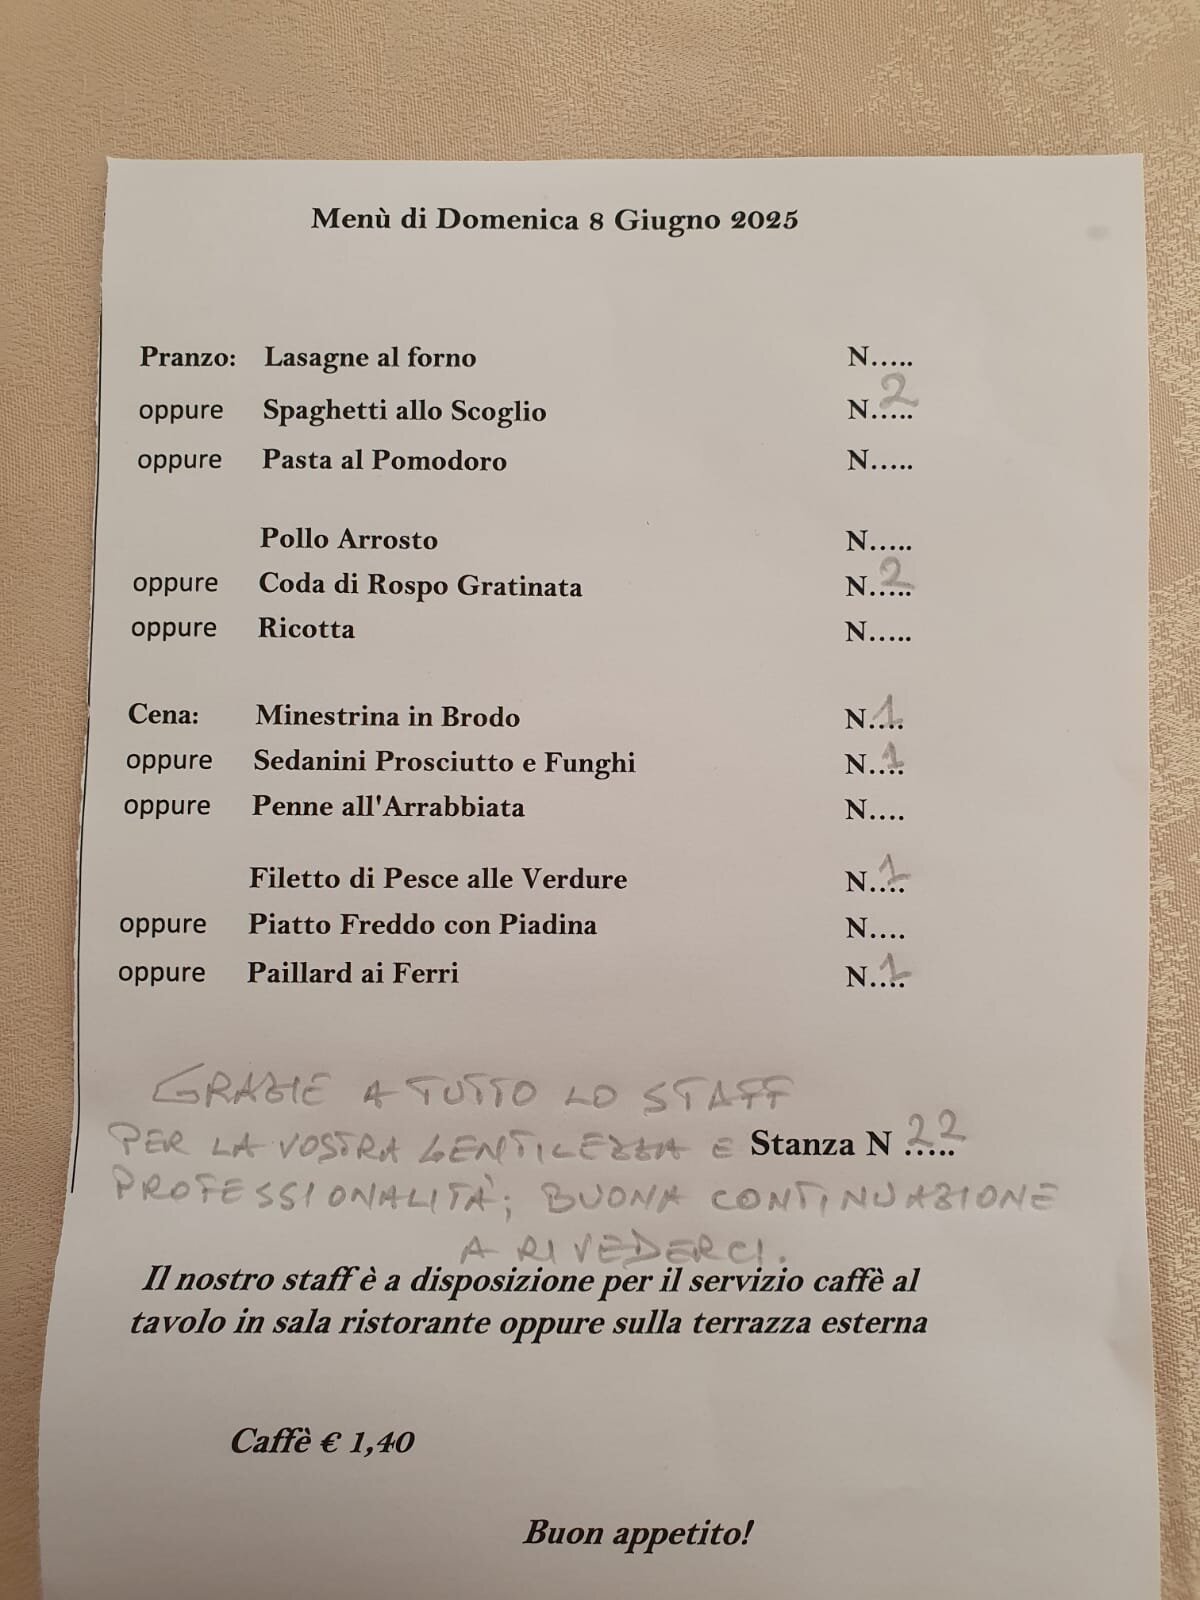 Menù di Domenica 8 Giugno 2025
Pranzo: Lasagne al forno N.....
oppure Spaghetti allo Scoglio N..... 2
oppure Pasta al Pomodoro N.....
Pollo Arrosto N.....
oppure Coda di Rospo Gratinata N..... 2
oppure Ricotta N.....
Cena: Minestrina in Brodo N.... 1
oppure Sedanini Prosciutto e Funghi N.... 1
oppure Penne all'Arrabbiata N....
Filetto di Pesce alle Verdure N.... 1
oppure Piatto Freddo con Piadina N....
oppure Paillard ai Ferri N.... 1
GRAZIE A TUTTO LO STAFF
PER LA VOSTRA GENTILEZZA E
Stanza N ..... 22
PROFESSIONALITÀ; BUONA CONTINUAZIONE
A RIVEDERCI.
Il nostro staff è a disposizione per il servizio caffè al
tavolo in sala ristorante oppure sulla terrazza esterna
Caffè € 1,40
Buon appetito!